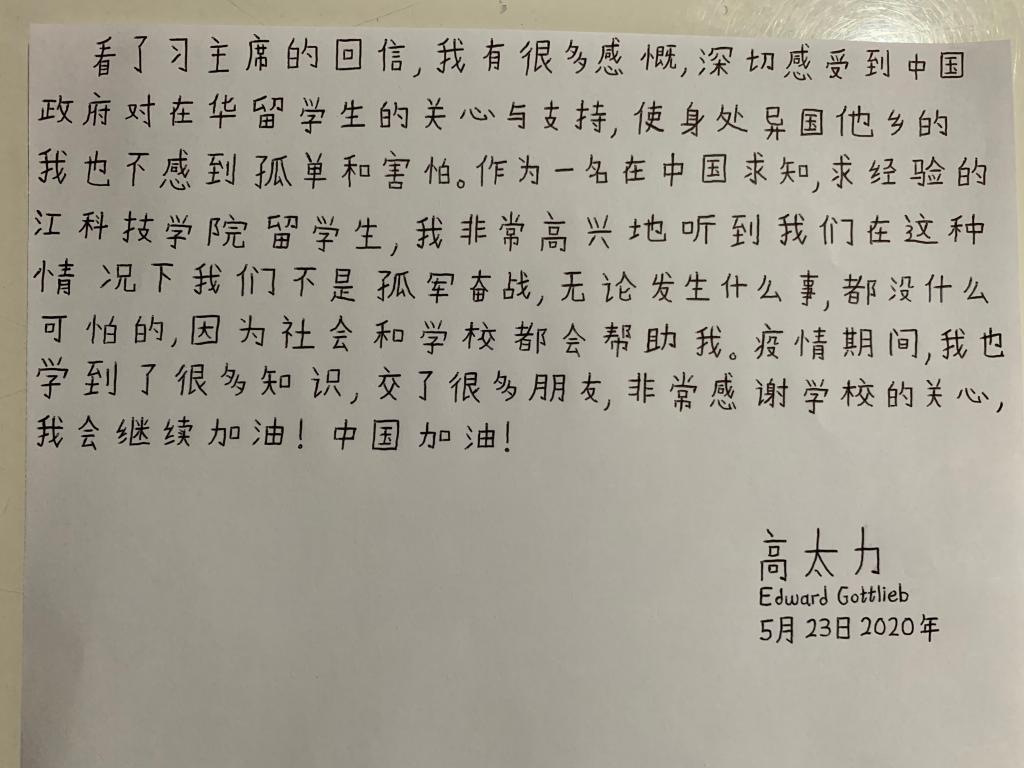 看了习主席的回信,我有很多感慨,深切感受到中国
政府对在华留学生的关心与支持,使身处异国他乡的
我也不感到孤单和害怕。作为一名在中国求知,求经验的
江科技学院留学生,我非常高兴地听到我们在这种
情况下我们不是孤军奋战,无论发生什么事,都没什么
可怕的,因为社会和学校都会帮助我。疫情期间,我也
学到了很多知识,交了很多朋友,非常感谢学校的关心,
我会继续加油!中国加油!
高太力
Edward Gottlieb
5月23日2020年